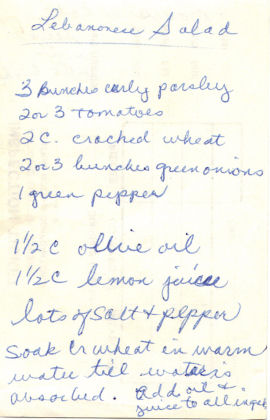 Lebanonese Salad
3 Bunches curly parsley
2 or 3 tomatoes
2 C. cracked wheat
2 or 3 bunches green onions
1 green pepper
1 1/2 C ollive oil
1 1/2 C lemon juice
lots of salt + pepper
Soak Cr wheat in warm
water till water is
absorbed. Add oil &
juice to all ingred